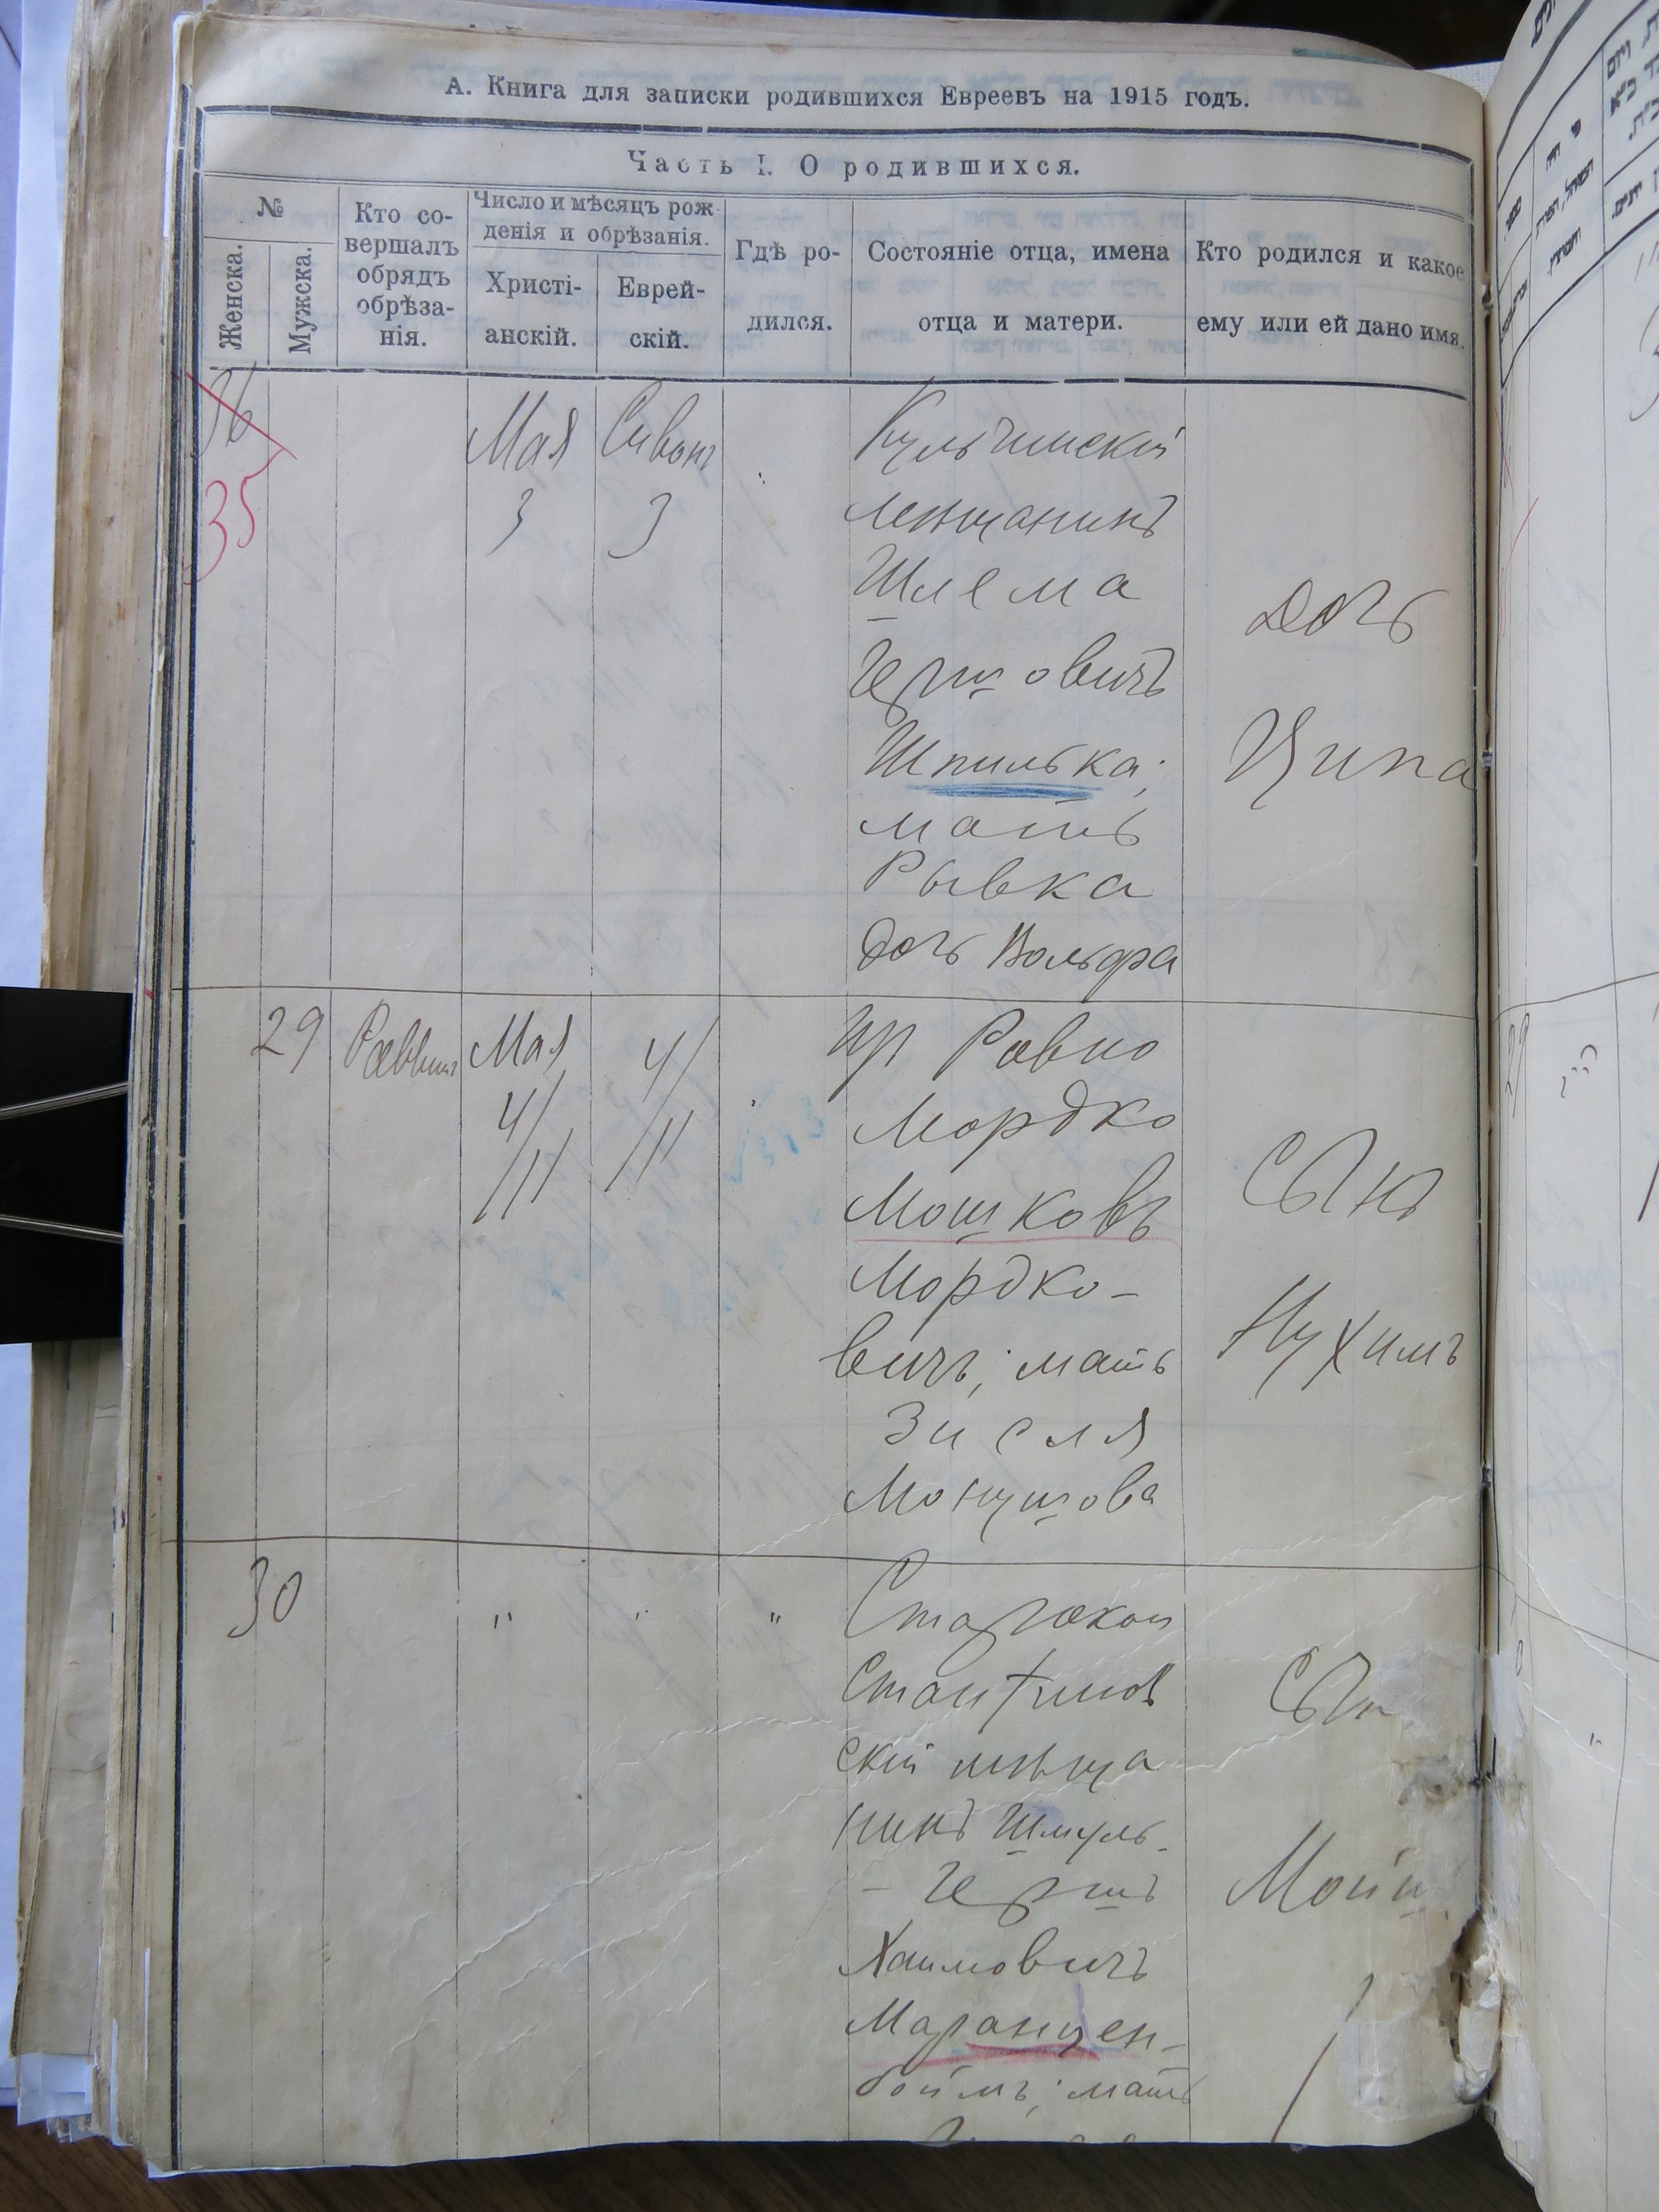 А. Книга для записки родившихся Евреевъ на 1915 годъ.
Часть I. О родившихся.
№
Женска.
Мужска.
Кто со-
вершалъ
обрядъ
обрѣза-
нія.
Число и мѣсяцъ рож-
денія и обрѣзанія.
Христі-
анскій.
Еврей-
скій.
Гдѣ ро-
дился.
Состояніе отца, имена
отца и матери.
Кто родился и какое
ему или ей дано имя.
36
35
Мая
3
Сивонъ
3
Кульчинскій
мещанинъ
Шлема
Гершовичъ
Шпилька;
мать
Рывка
дочь Вольфа
Дочь
Ципа
29
Раввинъ
Мая
4/
/11
4/
/11
Ровно
Мордко
Мошковъ
Мордко-
вичъ; мать
Зисля
Монушова
Сынъ
Нухимъ
30
"
"
"
Старокон
стантинов
скій мѣща
нинъ Шмуль-
- Гершъ
Хаимовичъ
Маранцен-
боймъ; мать
Сын
Мойш